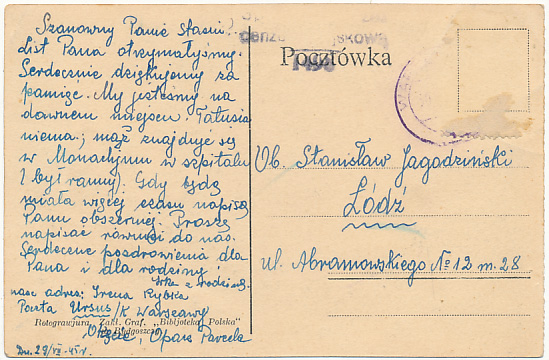 Szanowny Panie Stasiu!
List Pana otrzymałyśmy.
Serdecznie dziękujemy za
pamięć. My jesteśmy na
dawnem miejscu. Tatusia
niema; mąż znajduje się
w Monachjum w szpitalu
(był ranny). Gdy będę
miała więcej czasu napiszę
Panu obszerniej. Proszę
napisać również do nas.
Serdeczne pozdrowienia dla
Pana i dla rodziny.
Irka z rodziną.
nasz adres: Irena Rybka
Poczta Ursus /K Warszawy
Okęcie, Opacz
Dn. 29/VII-45r.
Rotograwjura Zakł. Graf. „Bibljoteka Polska"
Bydgoszcz
cenzu skową
1490
Pocztówka
Ob. Stanisław Jagodziński
Łódź
ul. Abramowskiego № 12 m. 28